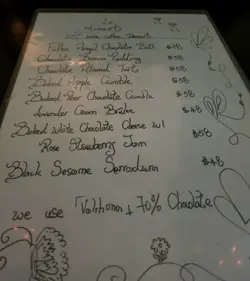 Le
Moment
Fallen Angel Chocolate Bath $48
Chocolate Banana Pudding $58
Chocolate Almond Tart $58
Baked Apple Crumble $58
Baked Pear Chocolate Crumble $58
Lavender Cream Brulee $48
Baked White Chocolate Cheese w/ $58
Rose Strawberry Jam
Black Sesame $48
we use Valrhona 70% Chocolate